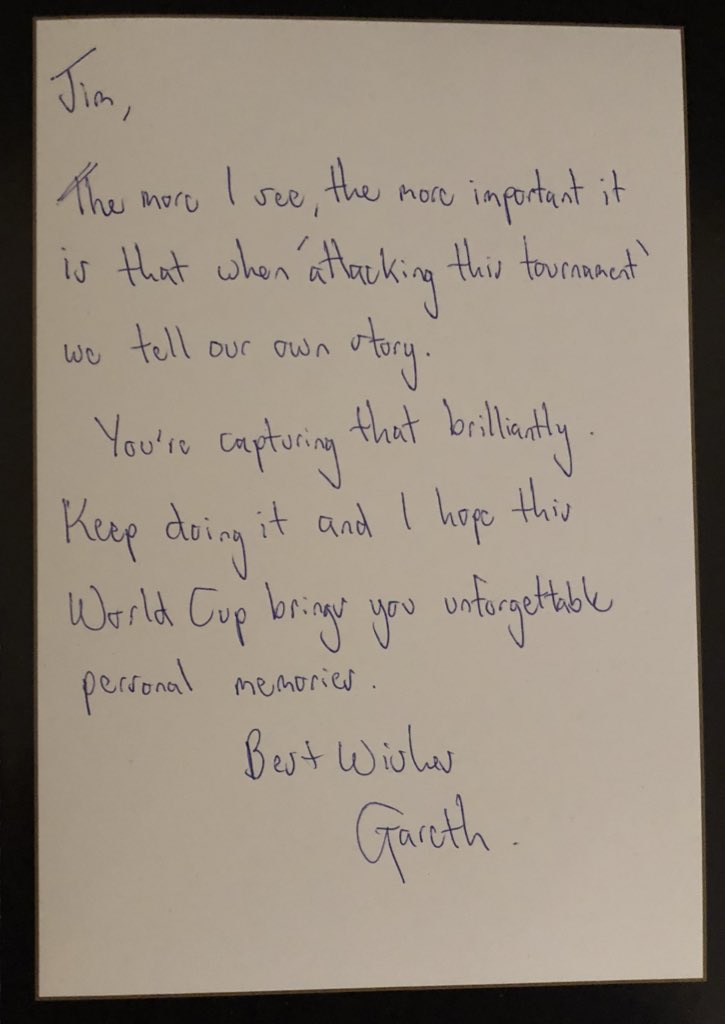 Jim,
The more I see, the more important it
is that when 'attacking this tournament'
we tell our own story.
You're capturing that brilliantly.
Keep doing it and I hope this
World Cup brings you unforgettable
personal memories.
Best Wishes
Gareth.